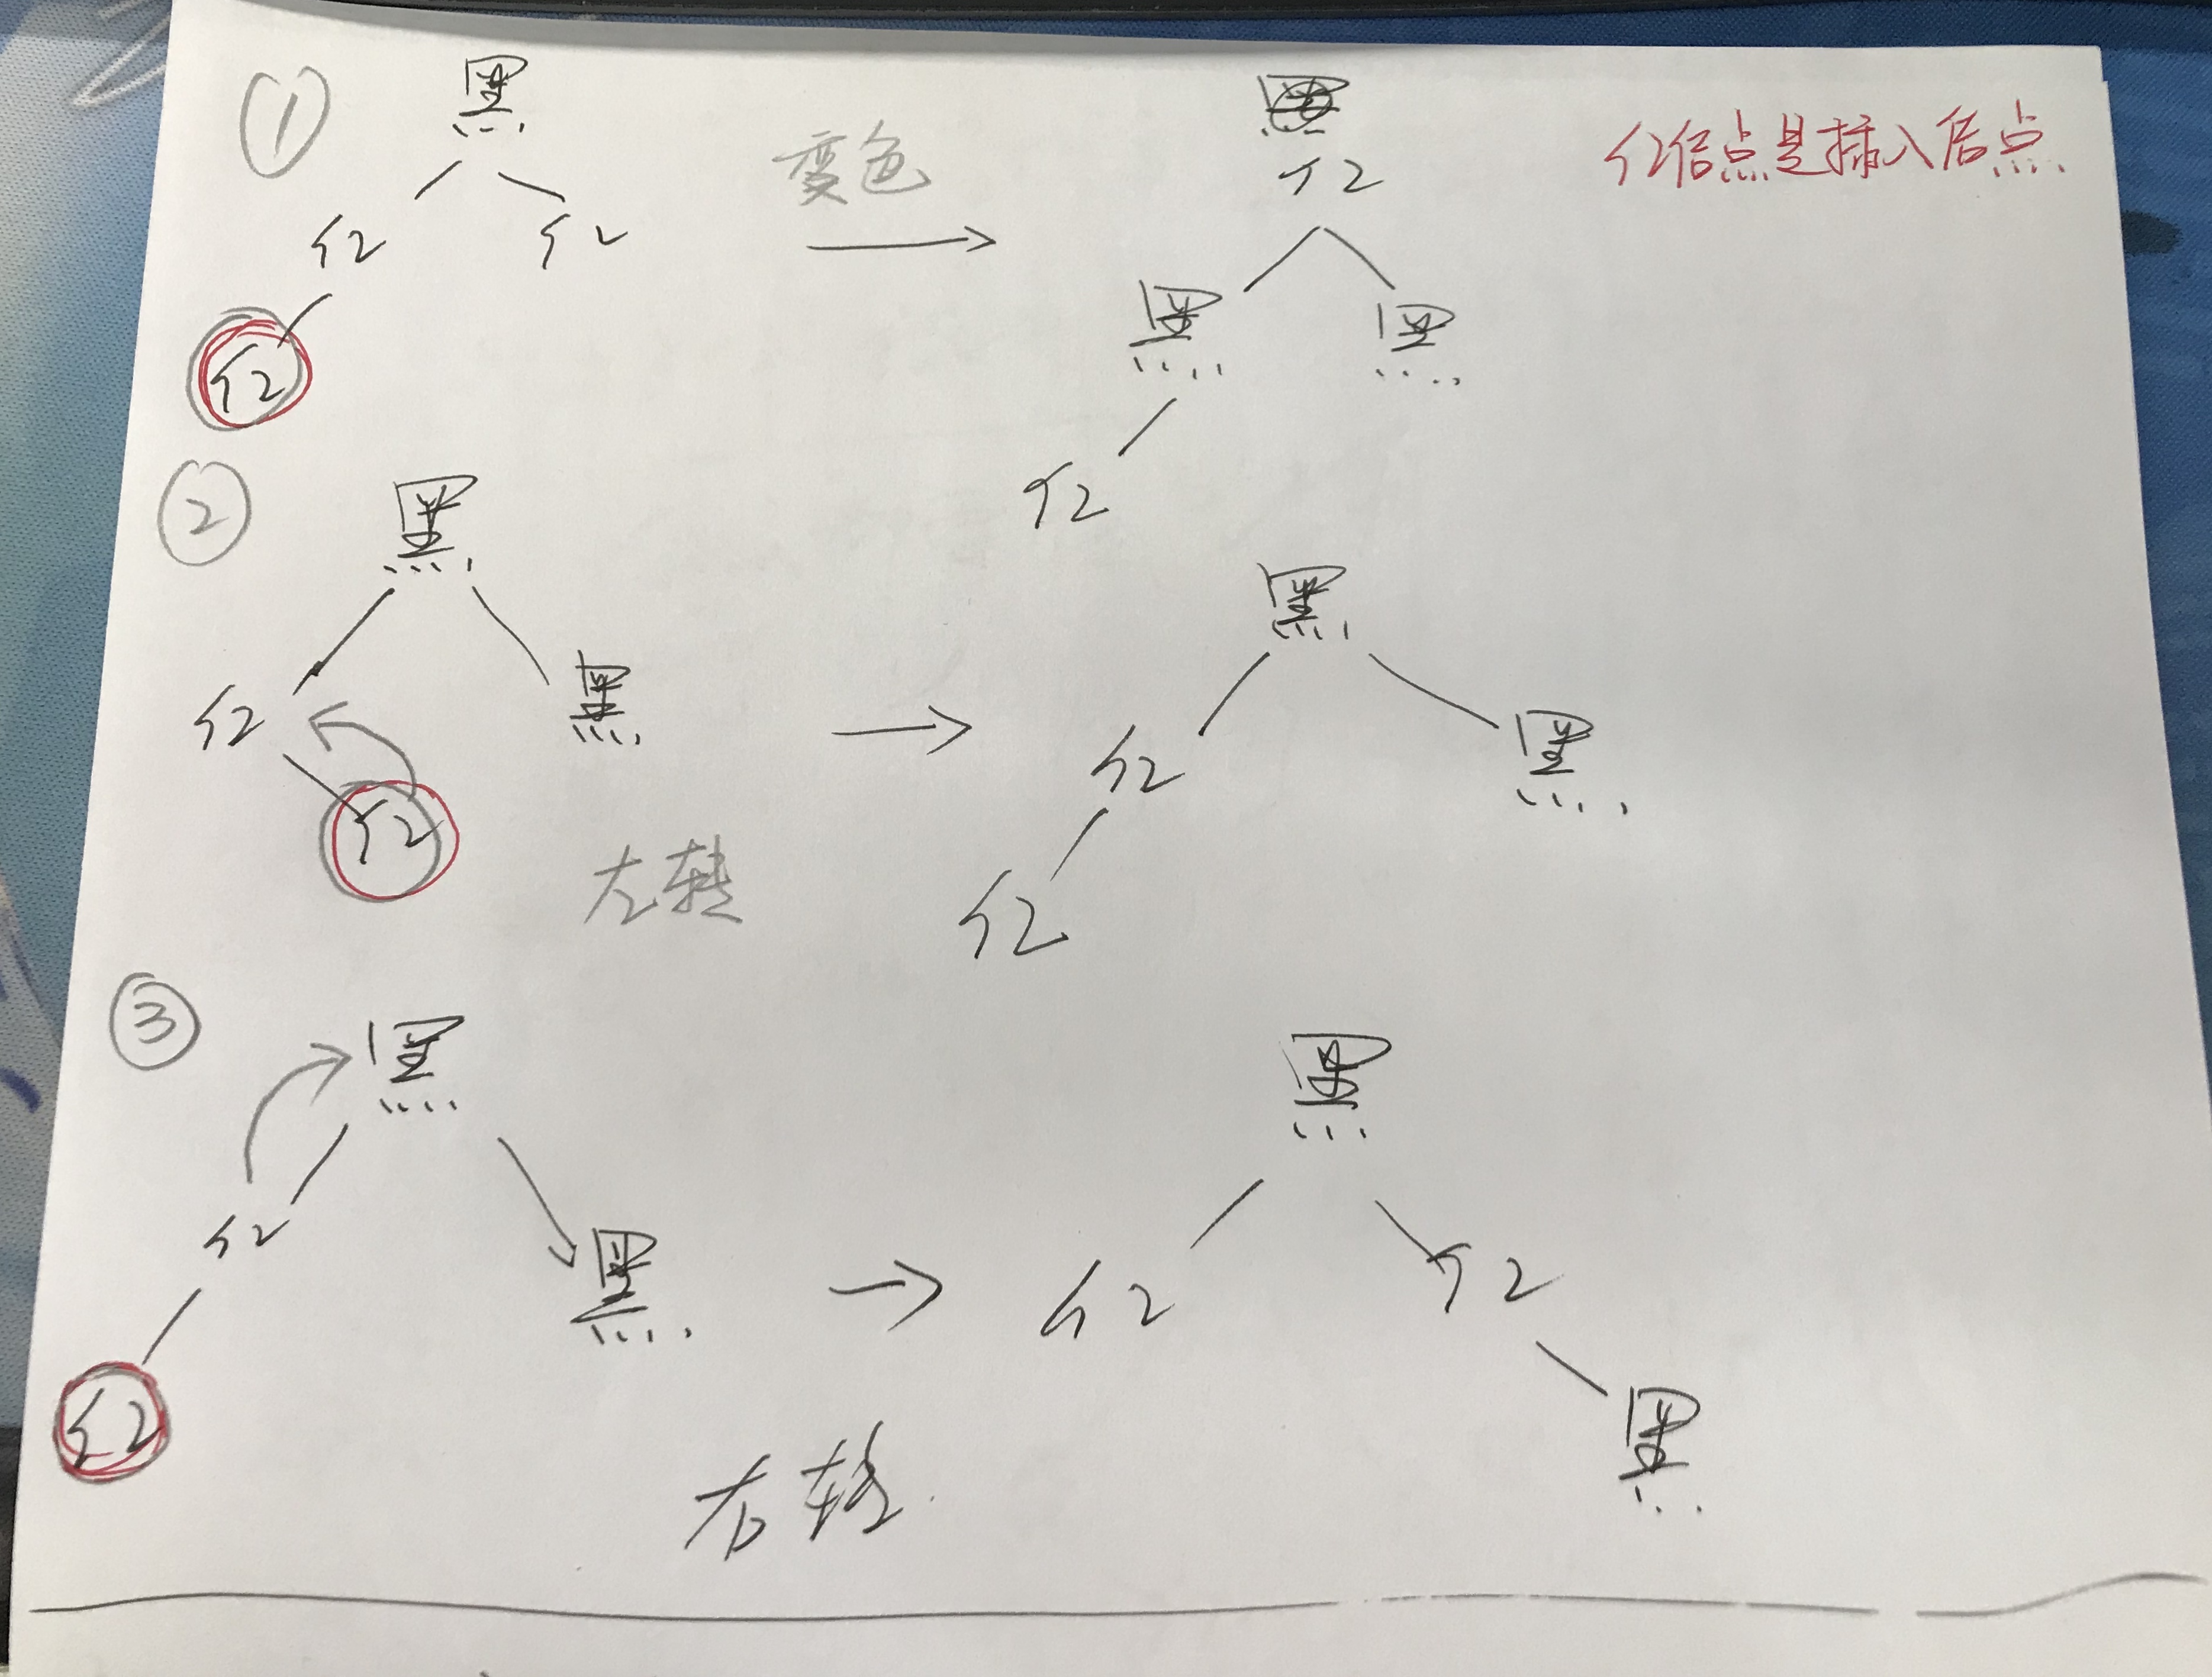 ① 黑
变色
黑
红
红 红
红
黑 黑
红
红倍点是插入后点
② 黑
红 黑
红
左转
黑
红 黑
红
③ 黑
红 黑
红
右转
黑
红 红
黑